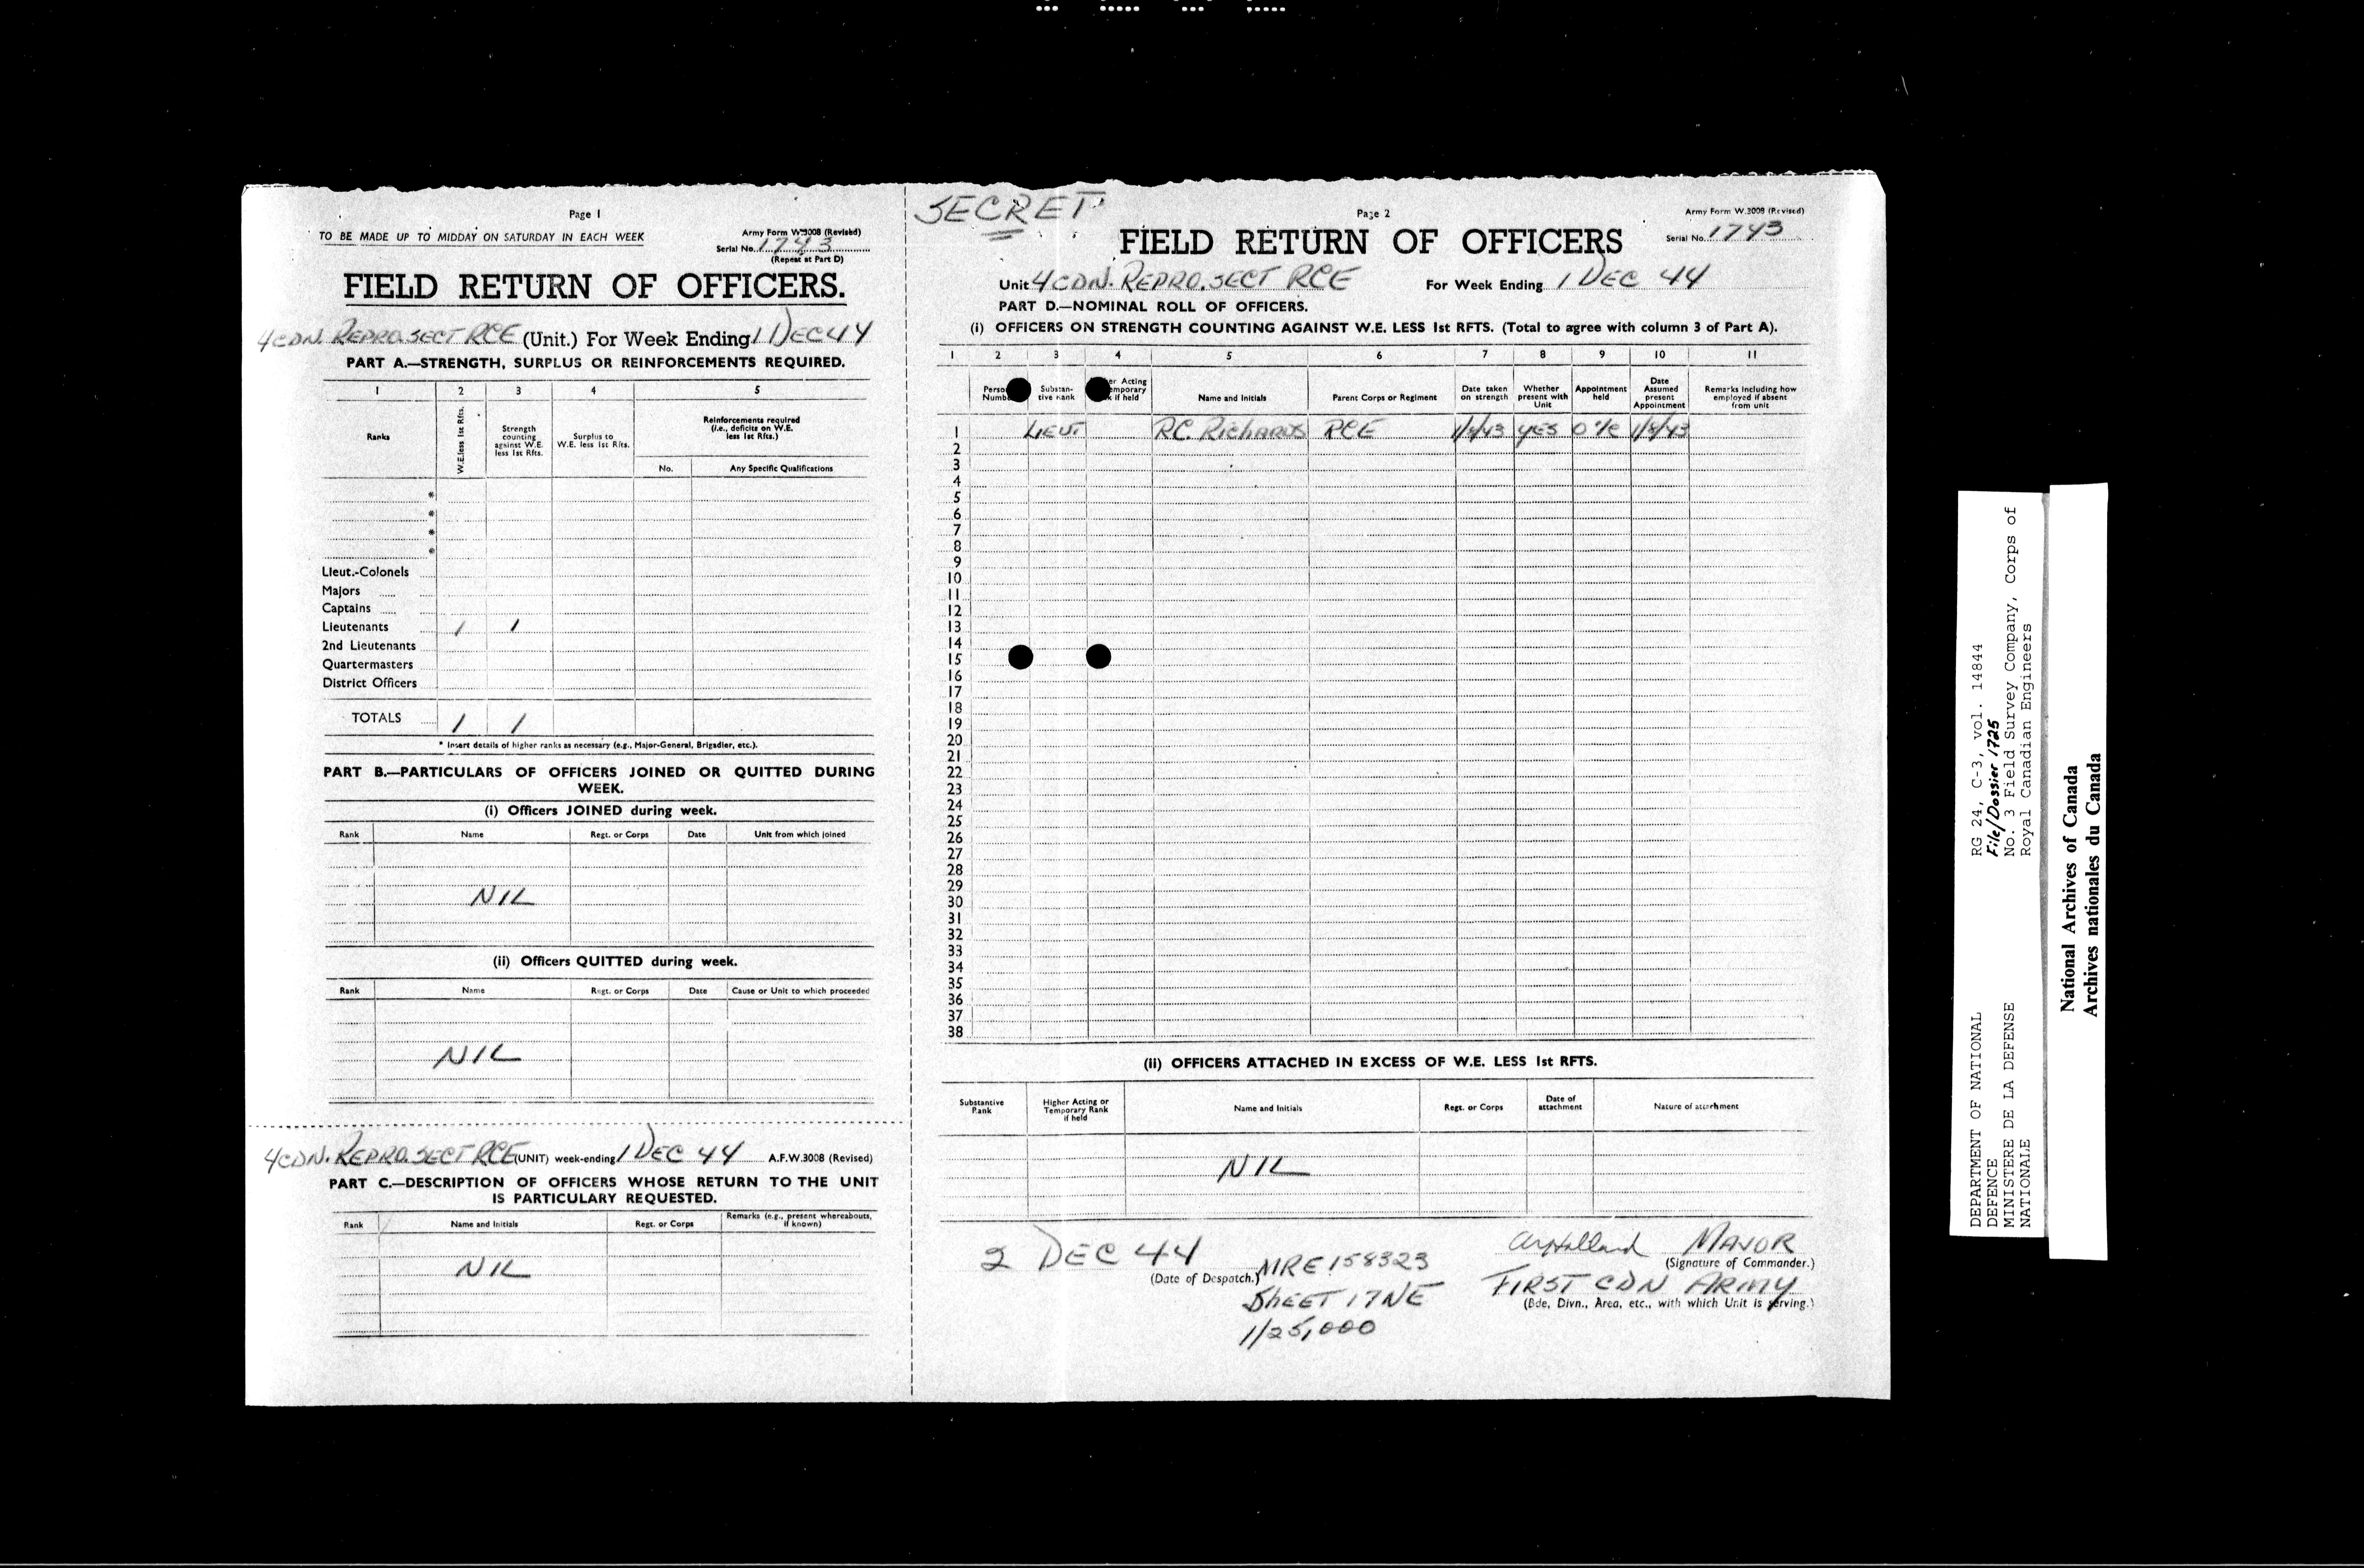 Page 1
TO BE MADE UP TO MIDDAY ON SATURDAY IN EACH WEEK
Army Form W.3008 (Revised)
Serial No. 1743
(Repeat at Part D)
FIELD RETURN OF OFFICERS.
4 CDN. REPRO. SECT RCE (Unit.) For Week Ending 1 DEC 44
PART A.—STRENGTH, SURPLUS OR REINFORCEMENTS REQUIRED.
1 2 3 4 5
Ranks
W.E. less 1st Rfts.
Strength counting against W.E. less 1st Rfts.
Surplus to W.E. less 1st Rfts.
Reinforcements required (i.e., deficits on W.E. less 1st Rfts.)
No. Any Specific Qualifications
*
*
*
*
Lieut.-Colonels
Majors
Captains
Lieutenants 1 1
2nd Lieutenants
Quartermasters
District Officers
TOTALS 1 1
* Insert details of higher ranks as necessary (e.g., Major-General, Brigadier, etc.).
PART B.—PARTICULARS OF OFFICERS JOINED OR QUITTED DURING
WEEK.
(i) Officers JOINED during week.
Rank Name Regt. or Corps Date Unit from which joined
NIL
(ii) Officers QUITTED during week.
Rank Name Regt. or Corps Date Cause or Unit to which proceeded
NIL
4 CDN. REPRO. SECT RCE (UNIT) week-ending 1 DEC 44 A.F.W.3008 (Revised)
PART C.—DESCRIPTION OF OFFICERS WHOSE RETURN TO THE UNIT
IS PARTICULARY REQUESTED.
Rank Name and Initials Regt. or Corps Remarks (e.g., present whereabouts, if known)
NIL
SECRET
Page 2
Army Form W.3008 (Revised)
FIELD RETURN OF OFFICERS
Serial No. 1743
Unit 4 CDN. REPRO. SECT RCE For Week Ending 1 DEC 44
PART D.—NOMINAL ROLL OF OFFICERS.
(i) OFFICERS ON STRENGTH COUNTING AGAINST W.E. LESS 1st RFTS. (Total to agree with column 3 of Part A).
1 2 3 4 5 6 7 8 9 10 11
Substan-tive rank
Name and Initials
Parent Corps or Regiment
Date taken on strength
Whether present with Unit
Appointment held
Date Assumed present Appointment
Remarks including how employed if absent from unit
1 LIEUT R.C. RICHARDS RCE 1/8/43 YES O i/c 1/8/43
2
3
4
5
6
7
8
9
10
11
12
13
14
15
16
17
18
19
20
21
22
23
24
25
26
27
28
29
30
31
32
33
34
35
36
37
38
(ii) OFFICERS ATTACHED IN EXCESS OF W.E. LESS 1st RFTS.
Substantive Rank
Higher Acting or Temporary Rank if held
Name and Initials
Regt. or Corps
Date of attachment
Nature of attachment
NIL
2 DEC 44
(Date of Despatch.)
MRE 158323
SHEET 17 NE
1/25,000
Holland MAJOR
(Signature of Commander.)
FIRST CDN ARMY
(Bde, Divn., Area, etc., with which Unit is serving.)
DEPARTMENT OF NATIONAL
DEFENCE
MINISTERE DE LA DEFENSE
NATIONALE
RG 24, C-3, vol. 14844
File/Dossier 1725
No. 3 Field Survey Company, Corps of
Royal Canadian Engineers
National Archives of Canada
Archives nationales du Canada